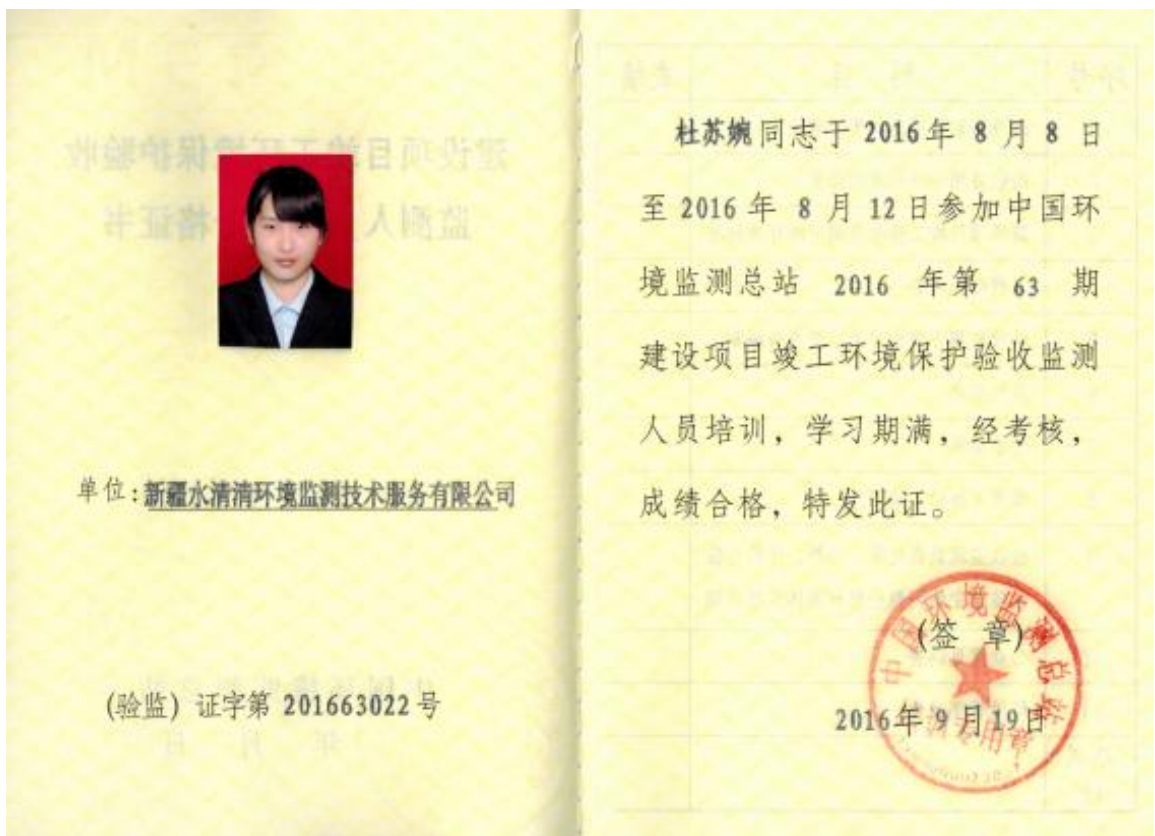 单位:新疆水清清环境监测技术服务有限公司
(验监) 证字第 201663022 号
杜苏婉同志于 2016年 8 月 8 日
至 2016 年 8 月 12日参加中国环
境监测总站 2016 年第 63 期
建设项目竣工环境保护验收监测
人员培训，学习期满，经考核，
成绩合格，特发此证。
中国环境监测总站
(签 章)
2016年 9 月19日
专用章